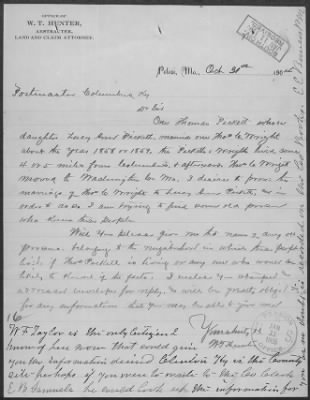 OFFICE OF
W. T. HUNTER,
ABSTRACTER,
LAND AND CLAIM ATTORNEY.
Potosi, Mo., Oct. 31st 1904
Postmaster Columbia Ky
Dr Sir
One Thomas Pickett whose
daughter Lucy Ann Pickett married one Thos C. Wright
about the year 1858 or 1859. The Picketts & Wrights lived some
4 or 5 miles from Columbia, & afterwards Thos C. Wright
moved to Washington Co Mo. I desire to prove the
marriage of Thos C. Wright to Lucy Ann Pickett, & in
order to do so I am trying to find some old person
who knew these people.
Will you please give me the name of any old
persons belonging to the neighborhood in which these people
lived, if Thos Pickett is living or any one who would be
likely to know of the facts. I enclose you stamped
addressed envelope for reply, & will be greatly obliged
for any information that you may be able to give me.
Yours truly,
W T Hunter
W. F. Taylor is the only citizen I
know of here now that could give
you the information desired Columbia Ky is the County
site perhaps if you were to write to the Co Clerk
he could look up the information for